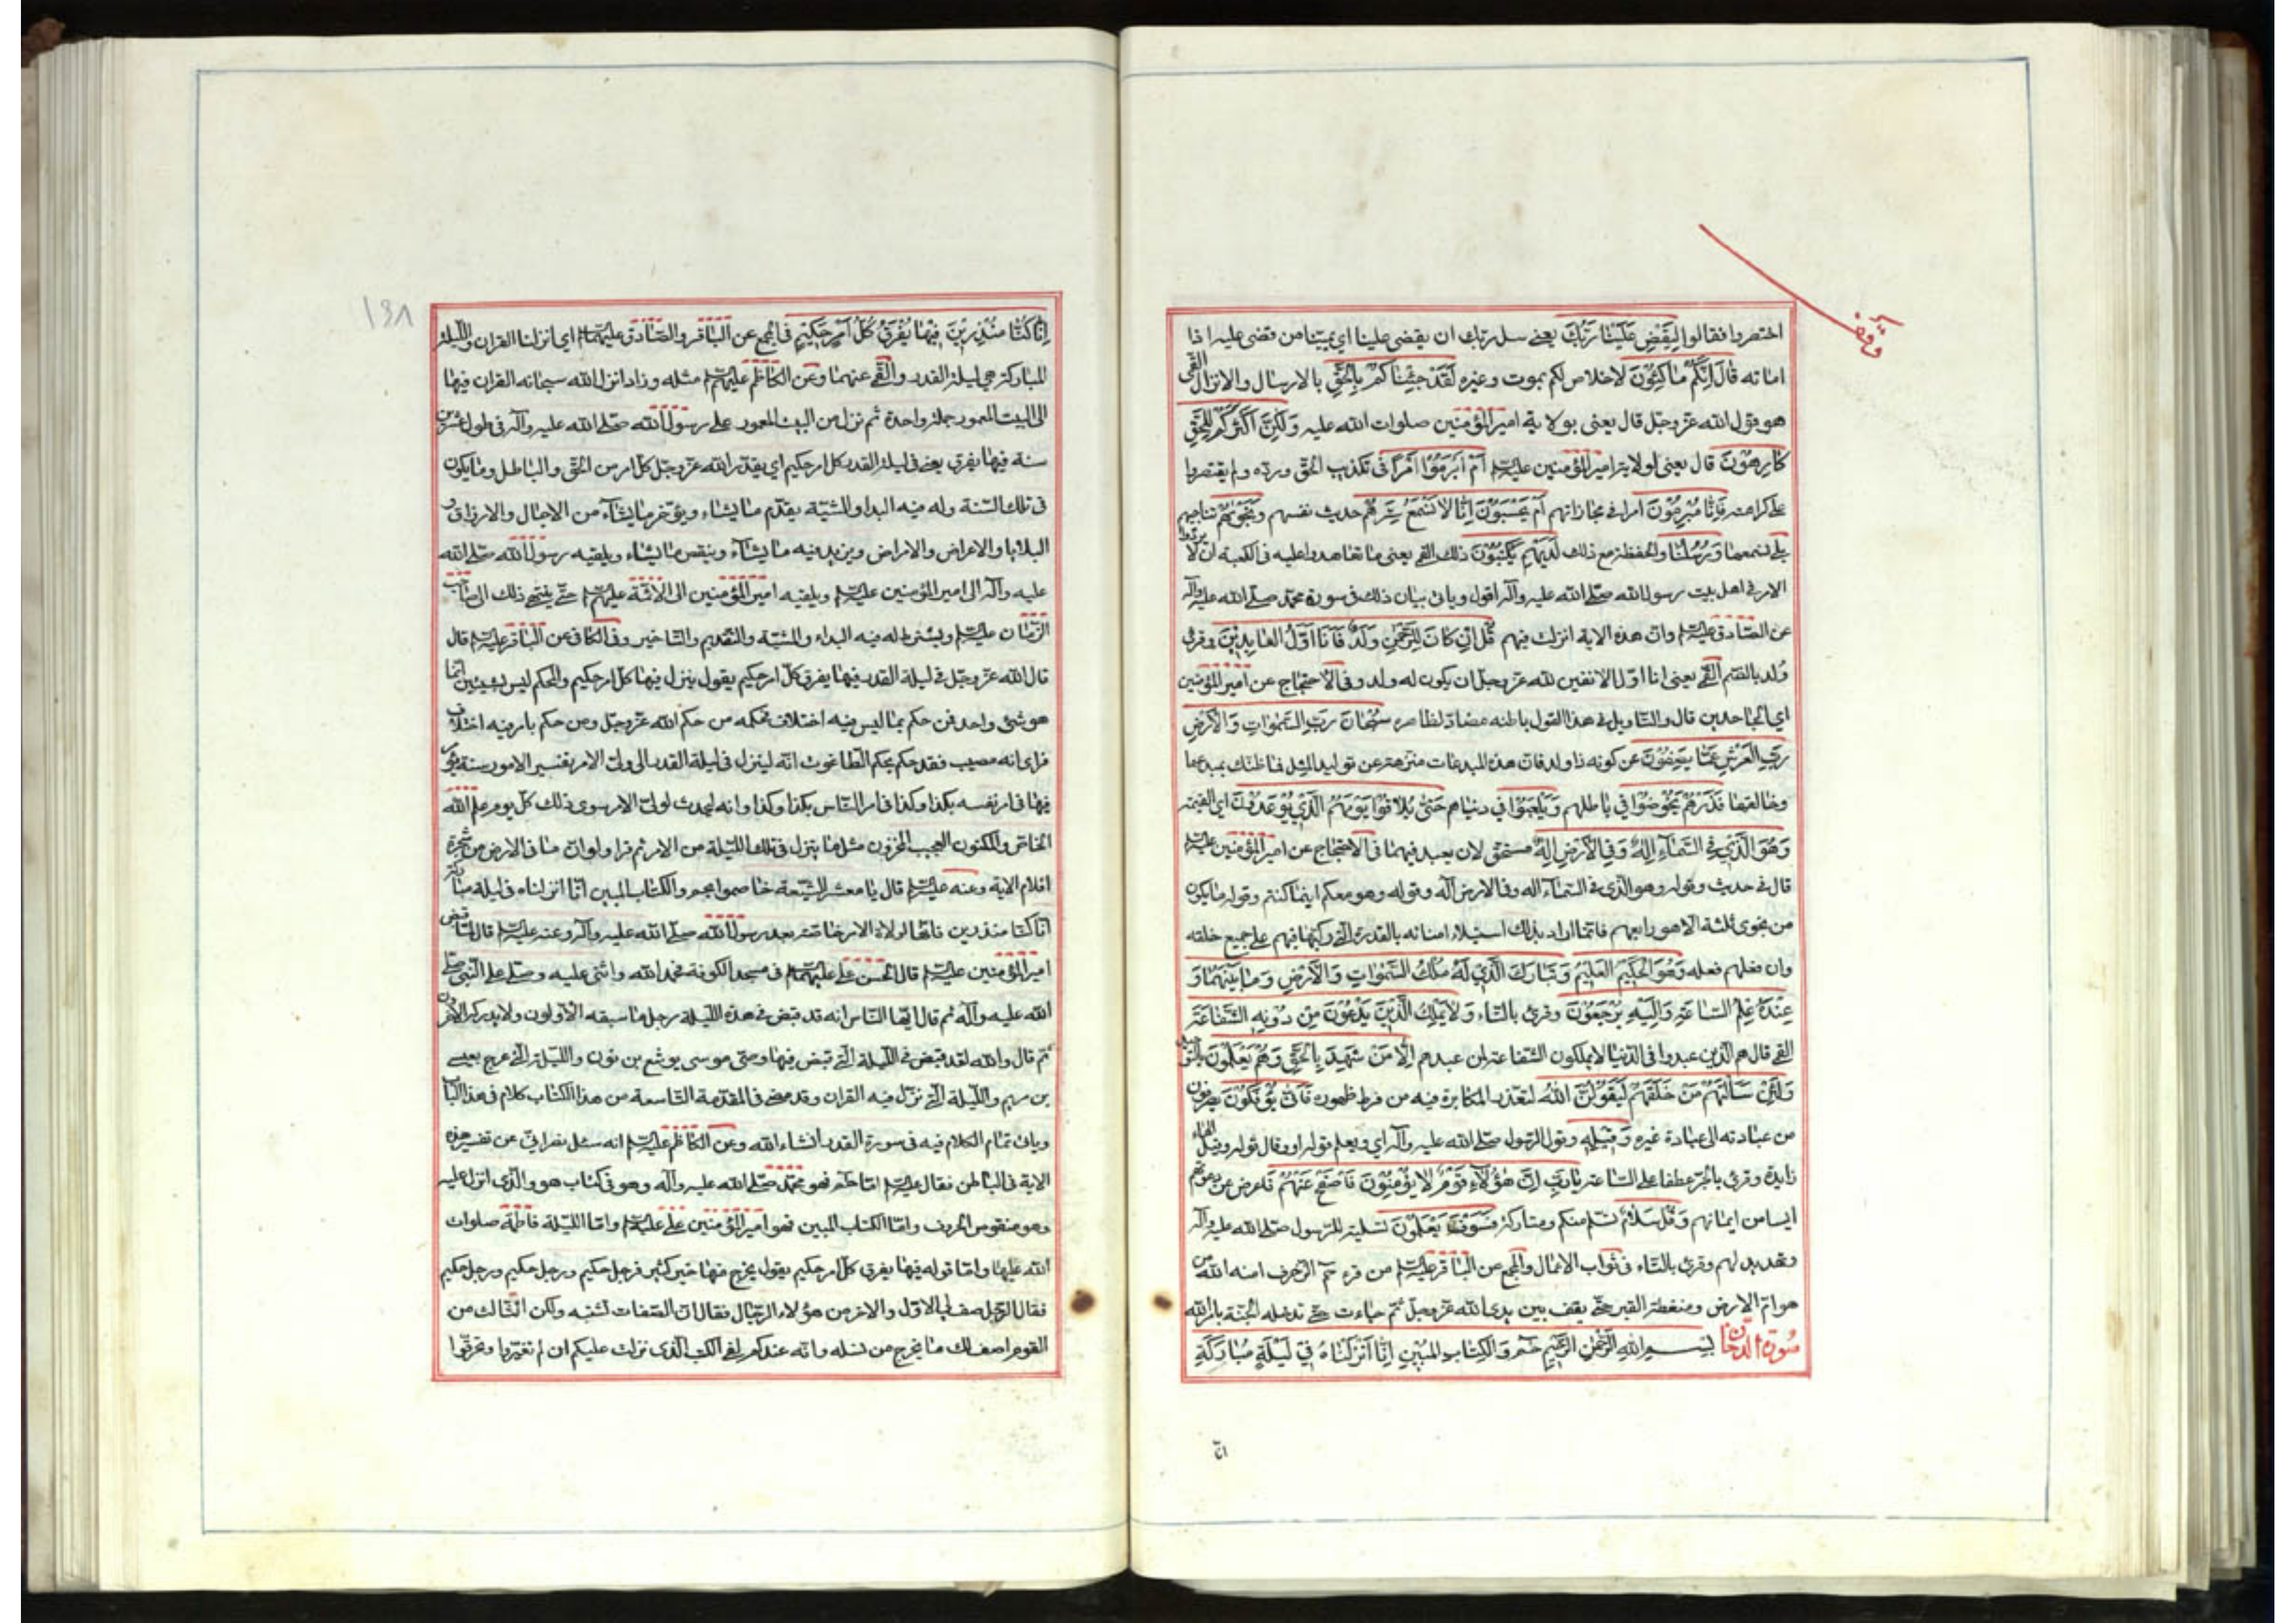 اختصروا فقالوا لِيَقْضِ عَلَيْنَا رَبُّكَ يعنى سل ربك ان يقضى علينا اى يميتنا من قضى عليه اذا
اماته قَالَ اِنَّكُمْ مَاكِثُونَ لاخلاص لكم بموت وغيره لَقَدْ جِئْنَاكُمْ بِالْحَقِّ بالارسال والانزال القمى
هو قول الله عز وجل قال يعنى بولاية امير المؤمنين صلوات الله عليه وَلَكِنَّ اَكْثَرَكُمْ لِلْحَقِّ
كَارِهُونَ قال يعنى لولاية امير المؤمنين عليه السلم اَمْ اَبْرَمُوا اَمْراً فى تكذيب الحق ورده ولم يقتصروا
على كراهته فَاِنَّا مُبْرِمُونَ امرا فى مجازاتهم اَمْ يَحْسَبُونَ اَنَّا لَا نَسْمَعُ سِرَّهُمْ حديث نفسهم وَنَجْوَيهُمْ تناجيهم
بَلَى نسمعها وَرُسُلُنَا والحفظة مع ذلك لَدَيْهِمْ يَكْتُبُونَ ذلك القمى يعنى ما تعاهدوا عليه فى الكعبة ان لا يردوا
الامر فى اهل بيت رسول الله صلى الله عليه وآله اقول وياتى بيان ذلك فى سورة محمد صلى الله عليه وآله
عن الصادق عليه السلم وان هذه الاية انزلت فيهم قُلْ اِنْ كَانَ لِلرَّحْمٰنِ وَلَدٌ فَاَنَا اَوَّلُ الْعَابِدِينَ وقرئ
وُلد بالضم القمى يعنى انا اول الانفين لله عز وجل ان يكون له ولد وفى الاحتجاج عن امير المؤمنين
اى الجاحدين قال والتاويل فى هذا القول باطنه مضاد لظاهره سُبْحَانَ رَبِّ السَّمٰوَاتِ وَالْاَرْضِ
رَبِّ الْعَرْشِ عَمَّا يَصِفُونَ عن كونه ذا ولد فان هذه المبدعات منزهة عن توليد المثل فما ظنك بمبدعها
وخالقها فَذَرْهُمْ يَخُوضُوا فى باطلهم وَيَلْعَبُوا فى دنياهم حَتَّى يُلَاقُوا يَوْمَهُمُ الَّذِى يُوعَدُونَ اى القيمة
وَهُوَ الَّذِى فِى السَّمَآءِ اِلٰهٌ وَفِى الْاَرْضِ اِلٰهٌ مستحق لان يعبد فيهما فى الاحتجاج عن امير المؤمنين عليه السلم
قال فى حديث وقوله وهو الذى فى السمآء اله وفى الارض اله وقوله وهو معكم اينما كنتم وقوله ما يكون
من نجوى ثلثة الا هو رابعهم فانما اراد بذلك استيلاء امنائه بالقدرة التى ركبها فيهم على جميع خلقه
وان فعلهم فعله وَهُوَ الْحَكِيمُ الْعَلِيمُ وَتَبَارَكَ الَّذِى لَهُ مُلْكُ السَّمٰوَاتِ وَالْاَرْضِ وَمَا بَيْنَهُمَا وَ
عِنْدَهُ عِلْمُ السَّاعَةِ وَاِلَيْهِ يُرْجَعُونَ وقرئ بالتاء وَلَا يَمْلِكُ الَّذِينَ يَدْعُونَ مِنْ دُونِهِ الشَّفَاعَةَ
القمى قال هم الذين عبدوا فى الدنيا لا يملكون الشفاعة لمن عبدهم اِلَّا مَنْ شَهِدَ بِالْحَقِّ وَهُمْ يَعْلَمُونَ بالتوحيد
وَلَئِنْ سَاَلْتَهُمْ مَنْ خَلَقَهُمْ لَيَقُولُنَّ اللهُ لتعذر المكابرة فيه من فرط ظهوره فَاَنَّى يُؤْفَكُونَ يصرفون
من عبادته الى عبادة غيره وَقِيلِهِ وقول الرسول صلى الله عليه وآله اى ويعلم قوله او وقال قوله وقيل الهاء
زايدة وقرئ بالجر عطفا على الساعة يَا رَبِّ اِنَّ هٰؤُلَآءِ قَوْمٌ لَا يُؤْمِنُونَ فَاصْفَحْ عَنْهُمْ فاعرض عن دعوتهم
ايسا من ايمانهم وَقُلْ سَلَامٌ تسلم منكم ومتاركة فَسَوْفَ يَعْلَمُونَ تسلية للرسول صلى الله عليه وآله
وتهديد لهم وقرئ بالتاء فى ثواب الاعمال والمجمع عن الباقر عليه السلم من قرء حم الزخرف امنه الله من
هوام الارض وضغطة القبر حتى يقف بين يدى الله عز وجل ثم جاءت حتى تدخله الجنة بامر الله
سُورَةُ الدخان بِسْمِ اللهِ الرَّحْمٰنِ الرَّحِيمِ حٓمٓ وَالْكِتَابِ الْمُبِينِ اِنَّا اَنْزَلْنَاهُ فِى لَيْلَةٍ مُبَارَكَةٍ
انا
١٣٨
اِنَّا كُنَّا مُنْذِرِينَ فِيهَا يُفْرَقُ كُلُّ اَمْرٍ حَكِيمٍ فى المجمع عن الباقر والصادق عليهما السلم اى انزلنا القران والليلة
المباركة هى ليلة القدر والقمى عنهما وعن الكاظم عليهم السلم مثله وزاد انزل الله سبحانه القران فيها
الى البيت المعمور جملة واحدة ثم نزل من البيت المعمور على رسول الله صلى الله عليه وآله فى طول عشرين
سنة فيها يفرق يعنى فى ليلة القدر كل امر حكيم اى يقدر الله عز وجل كل امر من الحق والباطل وما يكون
فى تلك السنة وله فيه البداء والمشية يقدم ما يشاء ويؤخر ما يشآء من الاجال والارزاق و
البلايا والاعراض والامراض ويزيد فيه ما يشآء وينقص ما يشاء ويلقيه رسول الله صلى الله
عليه وآله الى امير المؤمنين عليه السلم ويلقيه امير المؤمنين الى الائمة عليهم السلم حتى ينتهى ذلك الى صاحب
الزمان عليه السلم ويشترط له فيه البداء والمشية والتقديم والتاخير وفى الكافى عن الباقر عليه السلم قال
قال الله عز وجل فى ليلة القدر فيها يفرق كل امر حكيم يقول ينزل فيها كل امر حكيم والمحكم ليس بشيئين انما
هو شئ واحد فمن حكم بما ليس فيه اختلاف فحكمه من حكم الله عز وجل ومن حكم بامر فيه اختلاف
فراى انه مصيب فقد حكم بحكم الطاغوت انه لينزل فى ليلة القدر الى ولى الامر تفسير الامور سنة يؤمر
فيها فى امر نفسه بكذا وكذا وفى امر الناس بكذا وكذا وانه ليحدث لولى الامر سوى ذلك كل يوم علم الله
الخاص والمكنون العجيب المخزون مثل ما ينزل فى تلك الليلة من الامر ثم قرا ولو ان ما فى الارض من شجرة
اقلام الاية وعنه عليه السلم قال يا معشر الشيعة خاصموا بحم والكتاب المبين انا انزلناه فى ليلة مباركة
انا كنا منذرين فانها لولاة الامر خاصة بعد رسول الله صلى الله عليه وآله وعنه عليه السلم قال لما قبض
امير المؤمنين عليه السلم قام الحسن بن على عليهما السلم فى مسجد الكوفة فحمد الله واثنى عليه وصلى على النبى صلى
الله عليه وآله ثم قال ايها الناس انه قد قبض فى هذه الليلة رجل ما سبقه الاولون ولا يدركه الاخرون
ثم قال والله لقد قبض فى الليلة التى قبض فيها وصى موسى يوشع بن نون والليلة التى عرج بعيسى
بن مريم والليلة التى نزل فيه القران وقد مضى فى المقدمة التاسعة من هذا الكتاب كلام فى هذا الباب
وياتى تمام الكلام فيه فى سورة القدر انشاء الله وعن الكاظم عليه السلم انه سئل نصرانى عن تفسير هذه
الاية فى الباطن فقال عليه السلم اما حم فهو محمد صلى الله عليه وآله وهو فى كتاب هود الذى انزل عليه
وهو منقوص الحروف واما الكتاب المبين فهو امير المؤمنين على عليه السلم واما الليلة فاطمة صلوات
الله عليها واما قوله فيها يفرق كل امر حكيم يقول يخرج فيها خير كثير فرجل حكيم ورجل حكيم ورجل حكيم
فقال الرجل صف لى الاول والاخر من هؤلاء الرجال فقال ان الصفات تشتبه ولكن الثالث من
القوم اصف لك ما يخرج من نسله وانه عندكم لفى الكتب الذى نزلت عليكم ان لم تغيروا وتحرفوا